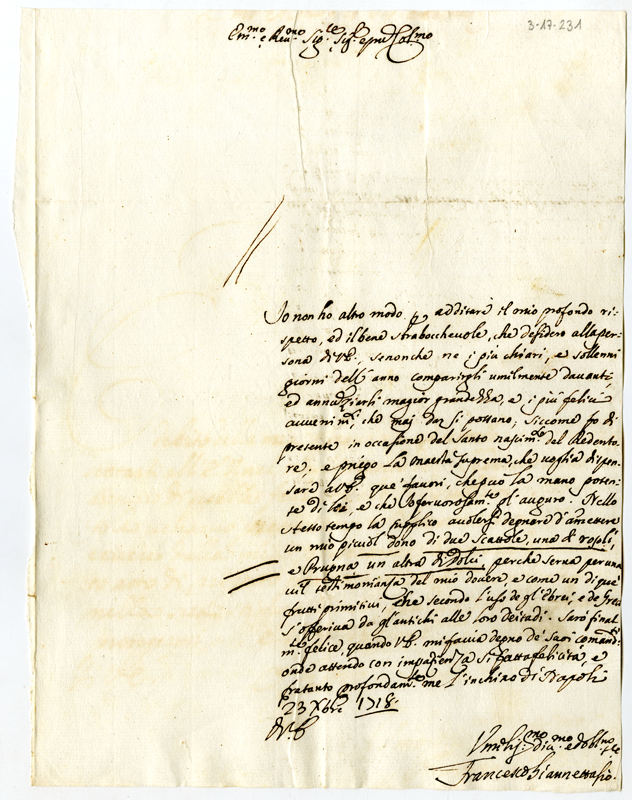 3-17-231
Em.mo e Rev.mo Sig.re Sig.r e pne Col.mo
Io non ho altro modo p additare il mio profondo ri-
spetto, ed il bene strabocchevole, che desidero alla per-
sona di V.E., senonche ne i più chiari, e sollenni
giorni dell' anno comparirgli umilmente davanti,
ed annuziarli magior grandezza, e i più felici
avvenim.ti, che maj dar si possano; siccome fo di
presente in occasione del Santo nascim.to del Redento-
re, e priego la Maestà suprema, che voglia dispen-
sare a V.E. que' favori, che può la mano poten-
te di lei, e che Io fervorosam.te gl' auguro. Nello
stesso tempo la supplico a volersi degnare d'amettere
un mio picciol dono di due Scattole, una di
e Brugna un altra di dolci, perche serva per una
testimonianza del mio dovere, e come un di que'
frutti primitivi, che secondo l'uso de gl'Ebrei, e de Greci
s'offeriva da gl'antichi alle loro deitadi. Sarò final
m.te felice, quando V.E. mi favia degno de suoi comandi
onde attendo con impazienza si fatta felicità, e
fratanto profondam.te me l'inchino di Napoli
23 Xbre 1718.
D V.E.
Um.o div.mo ed obl.mo
Francesco Giannettasio.